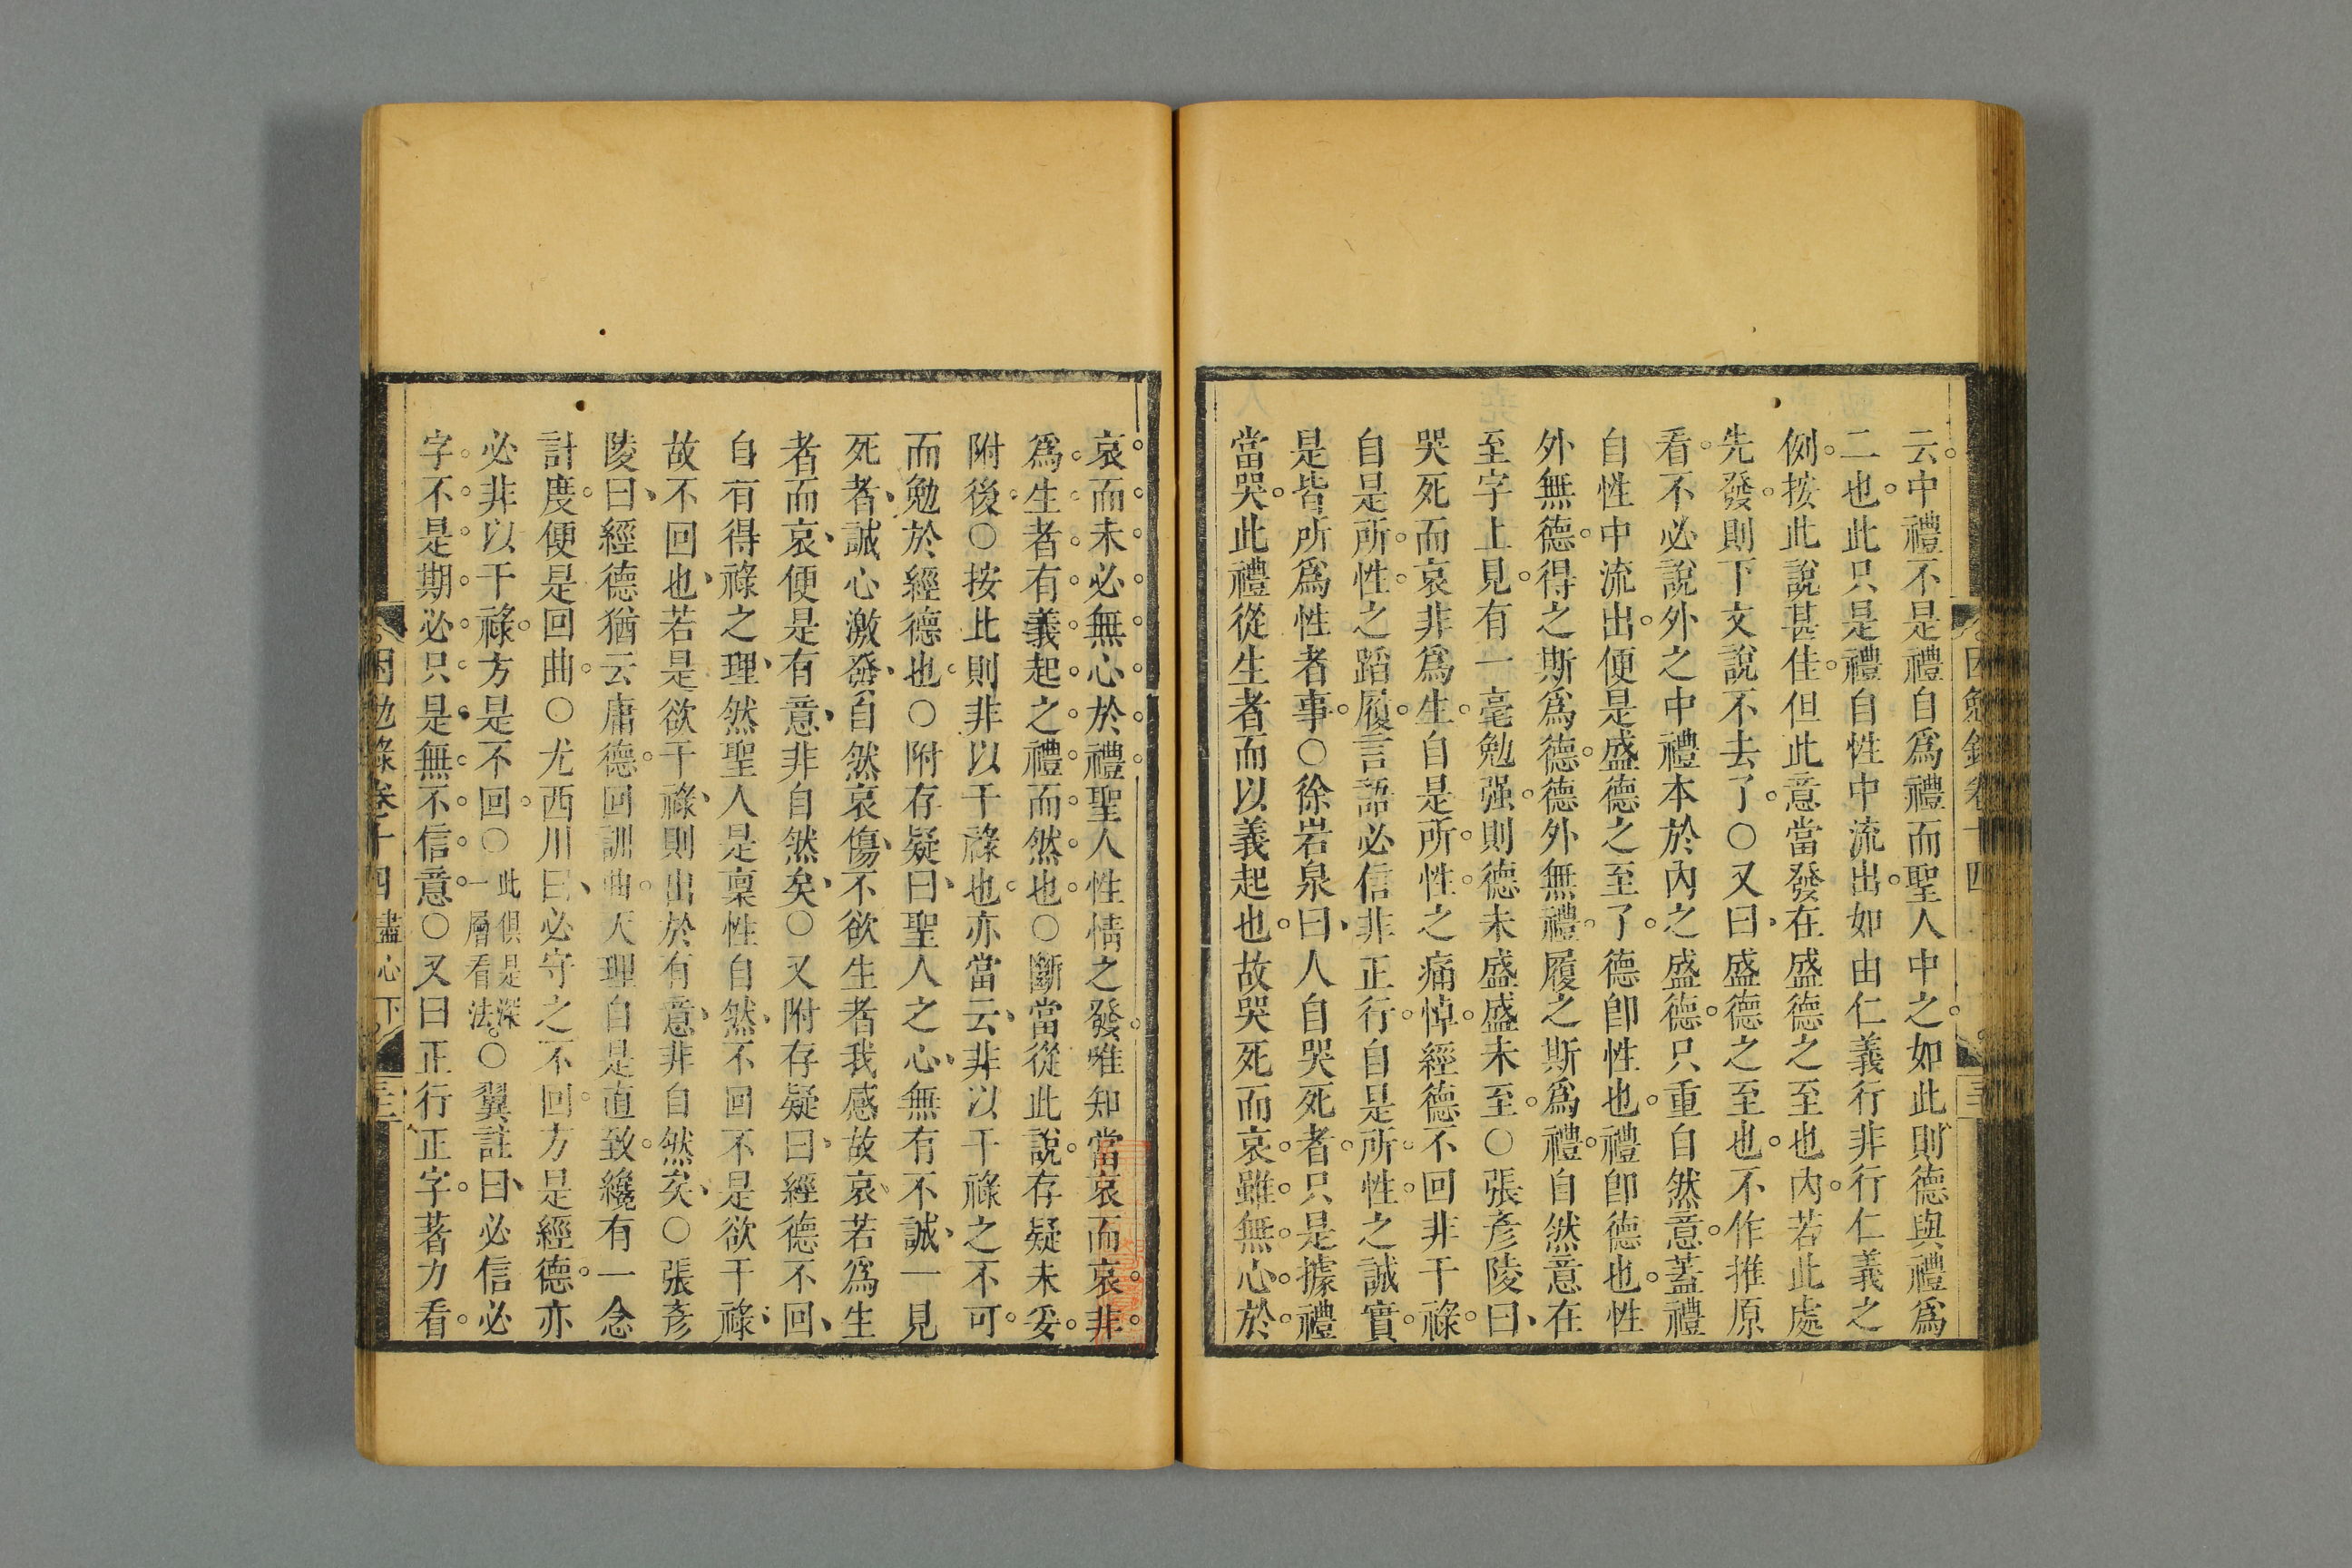 云中禮不是禮自爲禮而聖人中之如此則德與禮爲
二也此只是禮自性中流出如由仁義行非行仁義之
例按此說甚佳但此意當發在盛德之至也內若此處
先發則下文說不去了○又曰盛德之至也不作推原
看不必說外之中禮本於內之盛德只重自然意蓋禮
自性中流出便是盛德之至了德卽性也禮卽德也性
外無德得之斯爲德德外無禮履之斯爲禮自然意在
至字上見有一毫勉强則德未盛盛未至○張彥陵曰
哭死而哀非爲生自是所性之痛悼經德不回非干祿
自是所性之蹈履言語必信非正行自是所性之誠實
是皆所爲性者事○徐岩泉曰人自哭死者只是據禮
當哭此禮從生者而以義起也故哭死而哀雖無心於
哀而未必無心於禮聖人性情之發唯知當哀而哀非
爲生者有義起之禮而然也○斷當從此說存疑未妥
附後○按此則非以干祿也亦當云非以干祿之不可
而勉於經德也○附存疑曰聖人之心無有不誠一見
死者誠心激發自然哀傷不欲生者我感故哀若爲生
者而哀便是有意非自然矣○又附存疑曰經德不回
自有得祿之理然聖人是稟性自然不回不是欲干祿
故不回也若是欲干祿則出於有意非自然矣○張彥
陵曰經德猶云庸德回訓曲天理自是直致纔有一念
計度便是回曲○尤西川曰必守之不回方是經德亦
必非以干祿方是不回○此俱是深一層看法○翼註曰必信必
字不是期必只是無不信意○又曰正行正字著力看
困勉錄卷十四 盡心下 三三